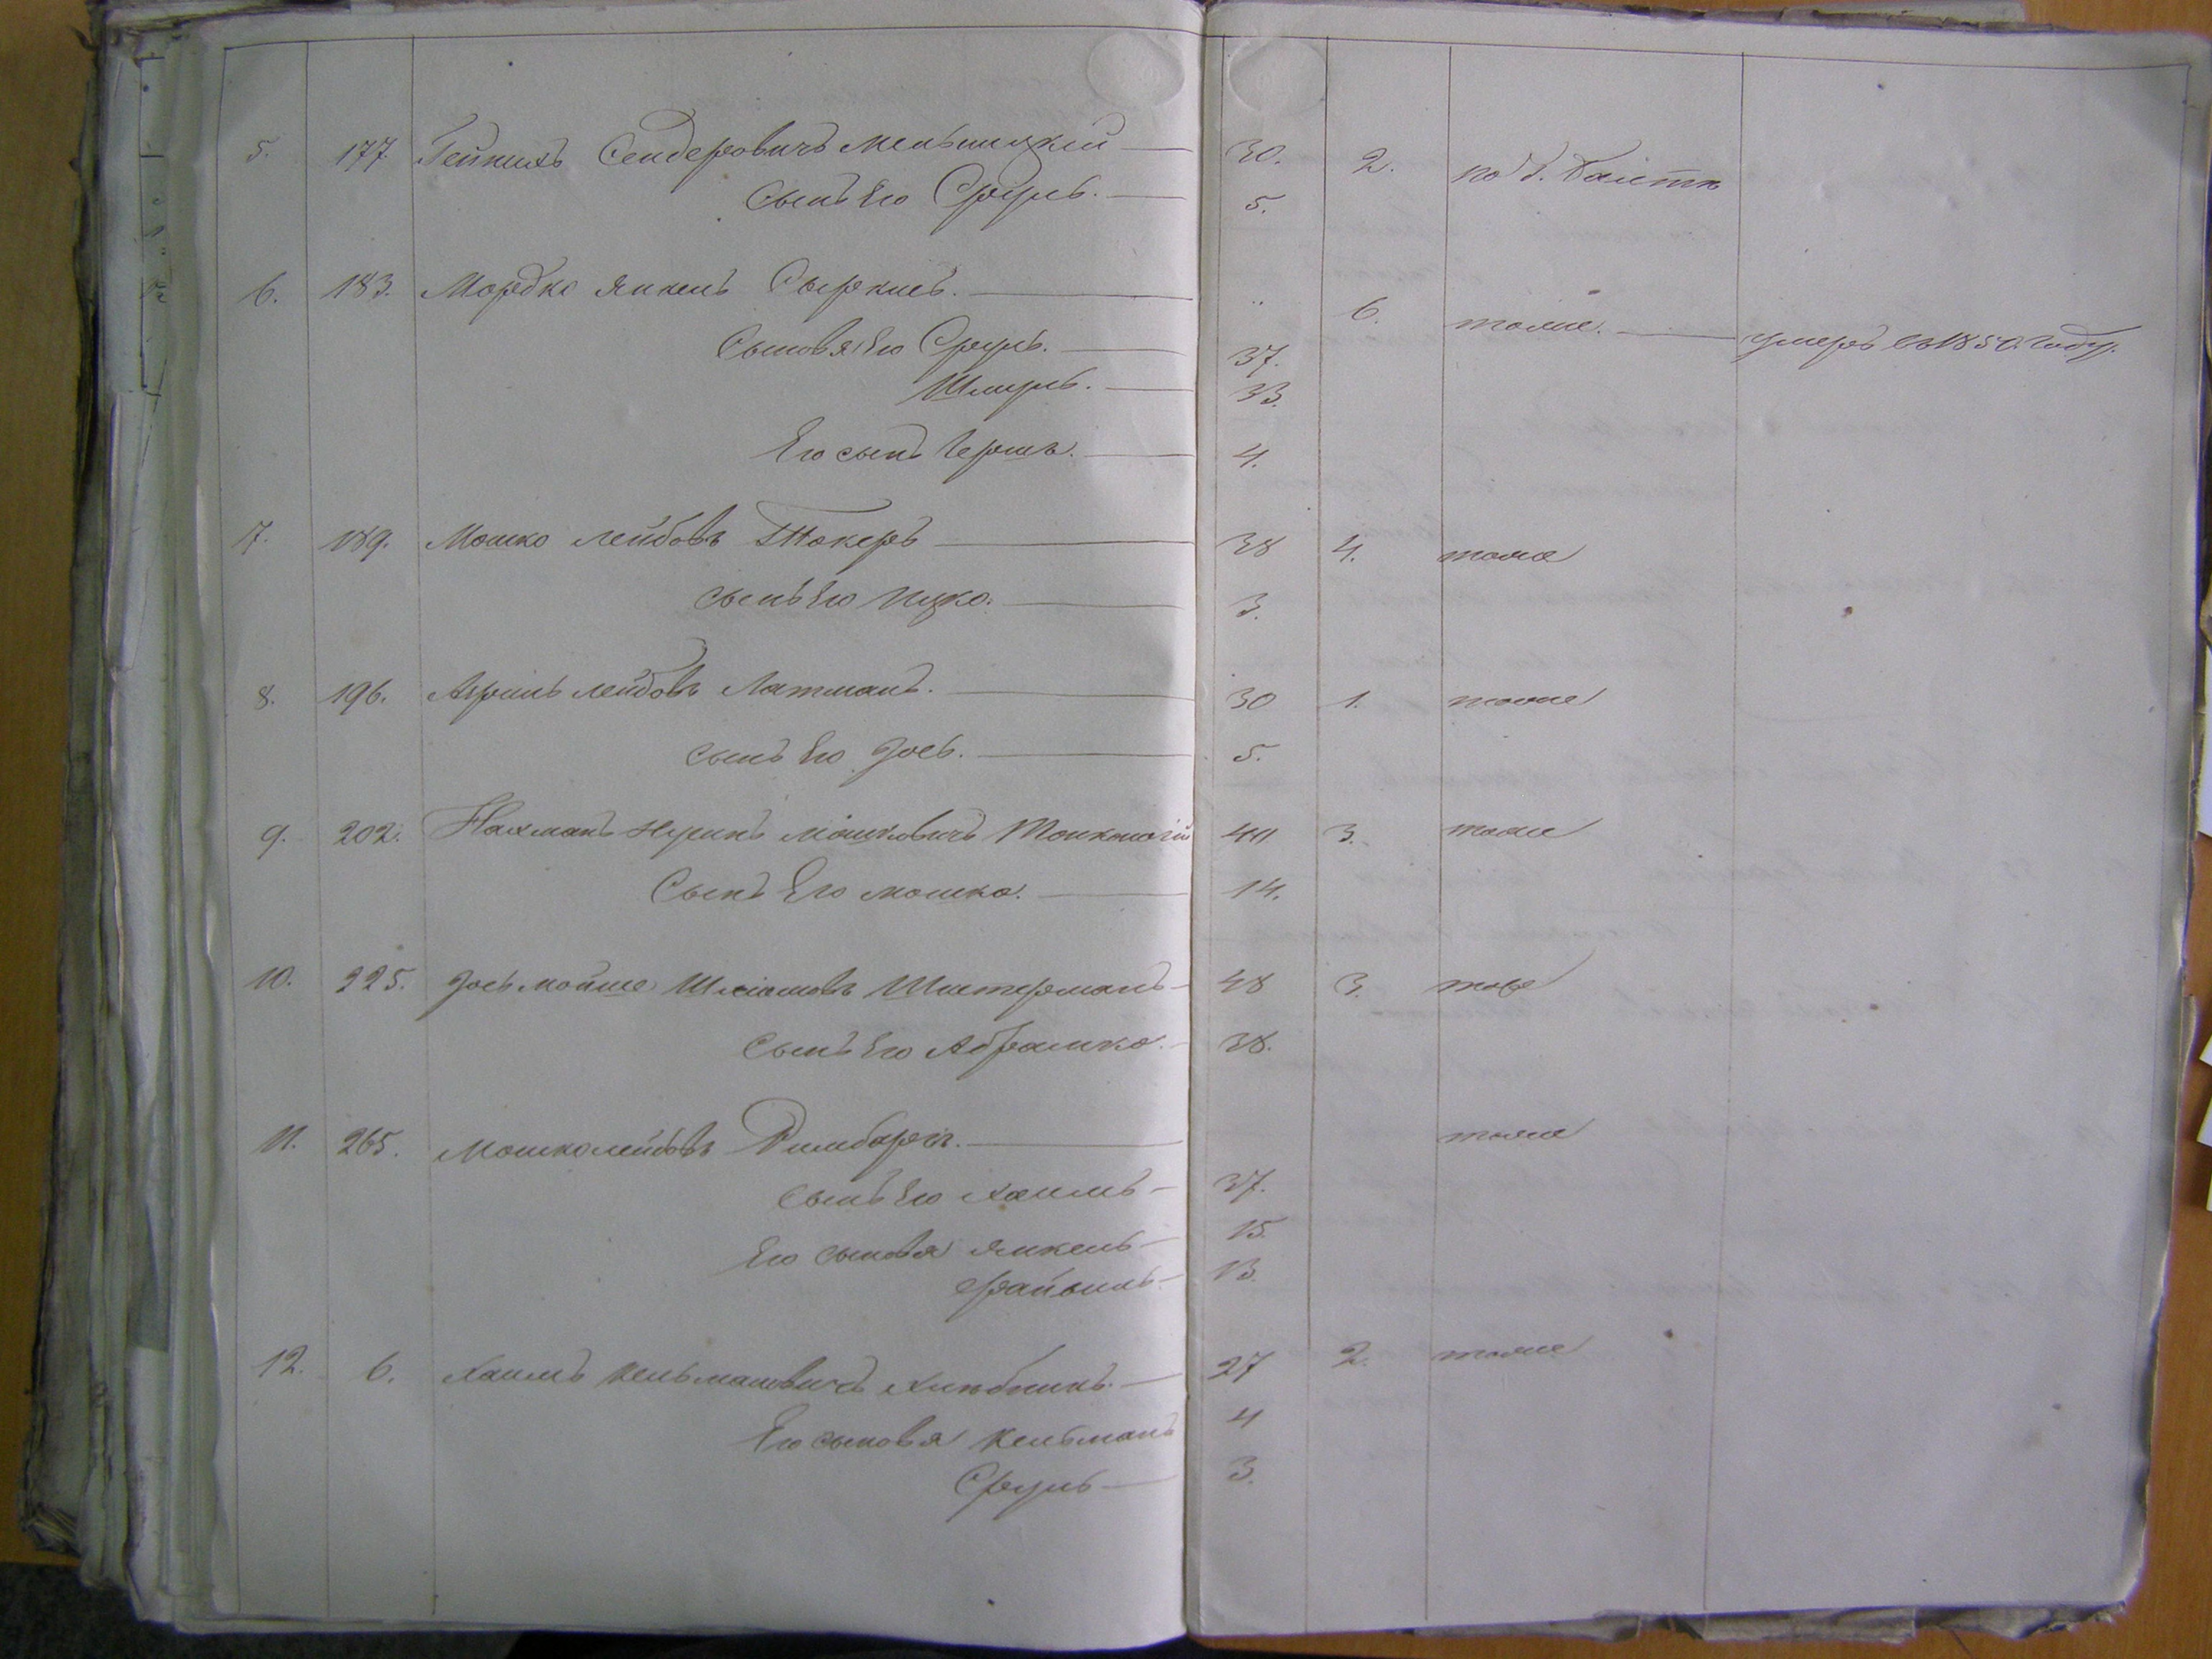 5. 177. Гейнихъ Сендеровичъ Мельницкій — 30. 2. по г. Балтѣ
Сынъ Его Сруль. — 5.
6. 183. Мордко Янкель Сыркисъ. — 6. тоже. — умеръ въ 1850. году.
Сыновья Его Сруль. — 37.
Шмуль. — 33.
Его сынъ Гершъ. — 4.
7. 189. Мошко Лейбовъ Токеръ — 38 4. тоже
сынъ Его Ицко. — 3.
8. 196. Лейбовъ Латманъ. — 30 1. тоже
сынъ Его Іось. — 5.
9. 202. Нахманъ Нусинъ Мошковичъ 44 3. тоже
Сынъ Его Мошко. — 14.
10. 225. Іось Мойше Шистерманъ — 48 3. тоже
Сынъ Его Абрамко. — 38.
11. 265. Мошко Лейбовъ — тоже
Сынъ Его Хаимъ — 37.
Его сыновя Янкель — 15.
Файвишъ — 13.
12. 6. Хаимъ Кельмановичъ Хлѣбникъ. — 27 2. тоже
Его сыновя Кельманъ 4
Сруль — 3.